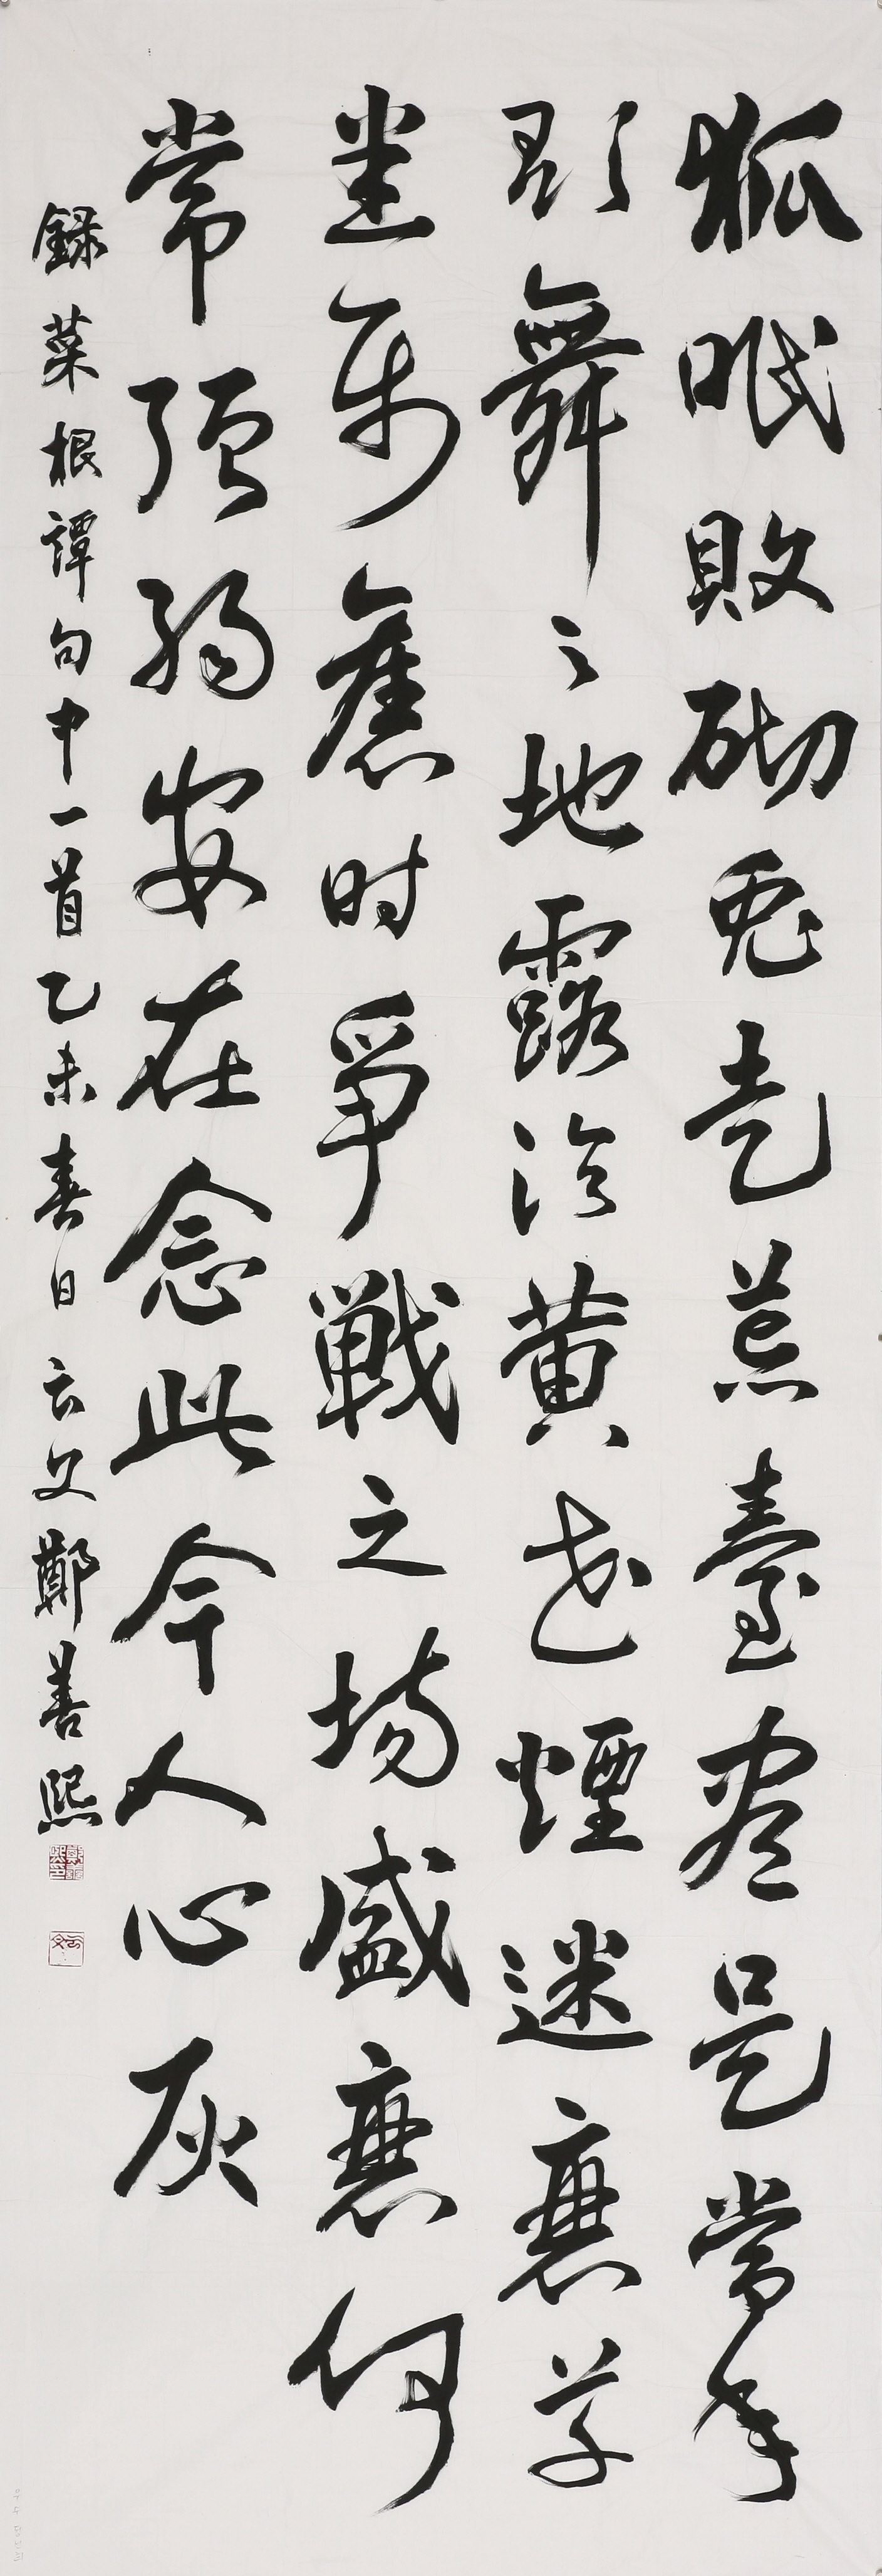 狐眠敗砌兔走荒臺盡是當年
歌舞之地露冷黃花煙迷衰草
悉屬舊時爭戰之場盛衰何
常强弱安在念此令人心灰
錄菜根譚句中一首乙未春日云文鄭善熙